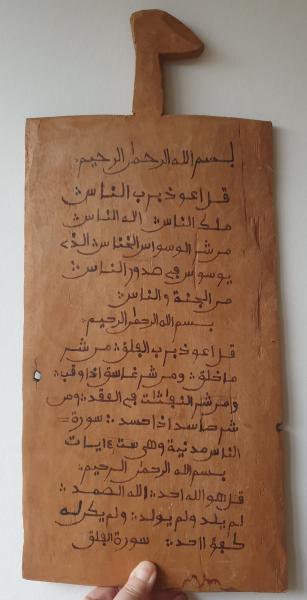 بسم الله الرحمن الرحيم
قل اعوذ برب الناس
ملك الناس اله الناس
من شر الوسواس الخناس الذے
يوسوس في صدور الناس
من الجنة والناس
بسم الله الرحمن الرحيم
قل اعوذ برب الفلق من شر
ما خلق ومن شر غاسق اذا وقب
ومن شر النفثت في العقد ومن
شر حاسد اذا حسد سورة
الناس مدنية وهي ست ءايات
بسم الله الرحمن الرحيم
قل هو الله احد الله الصمد
لم يلد ولم يولد ولم يكن له
كفؤا احد سورة الفلق